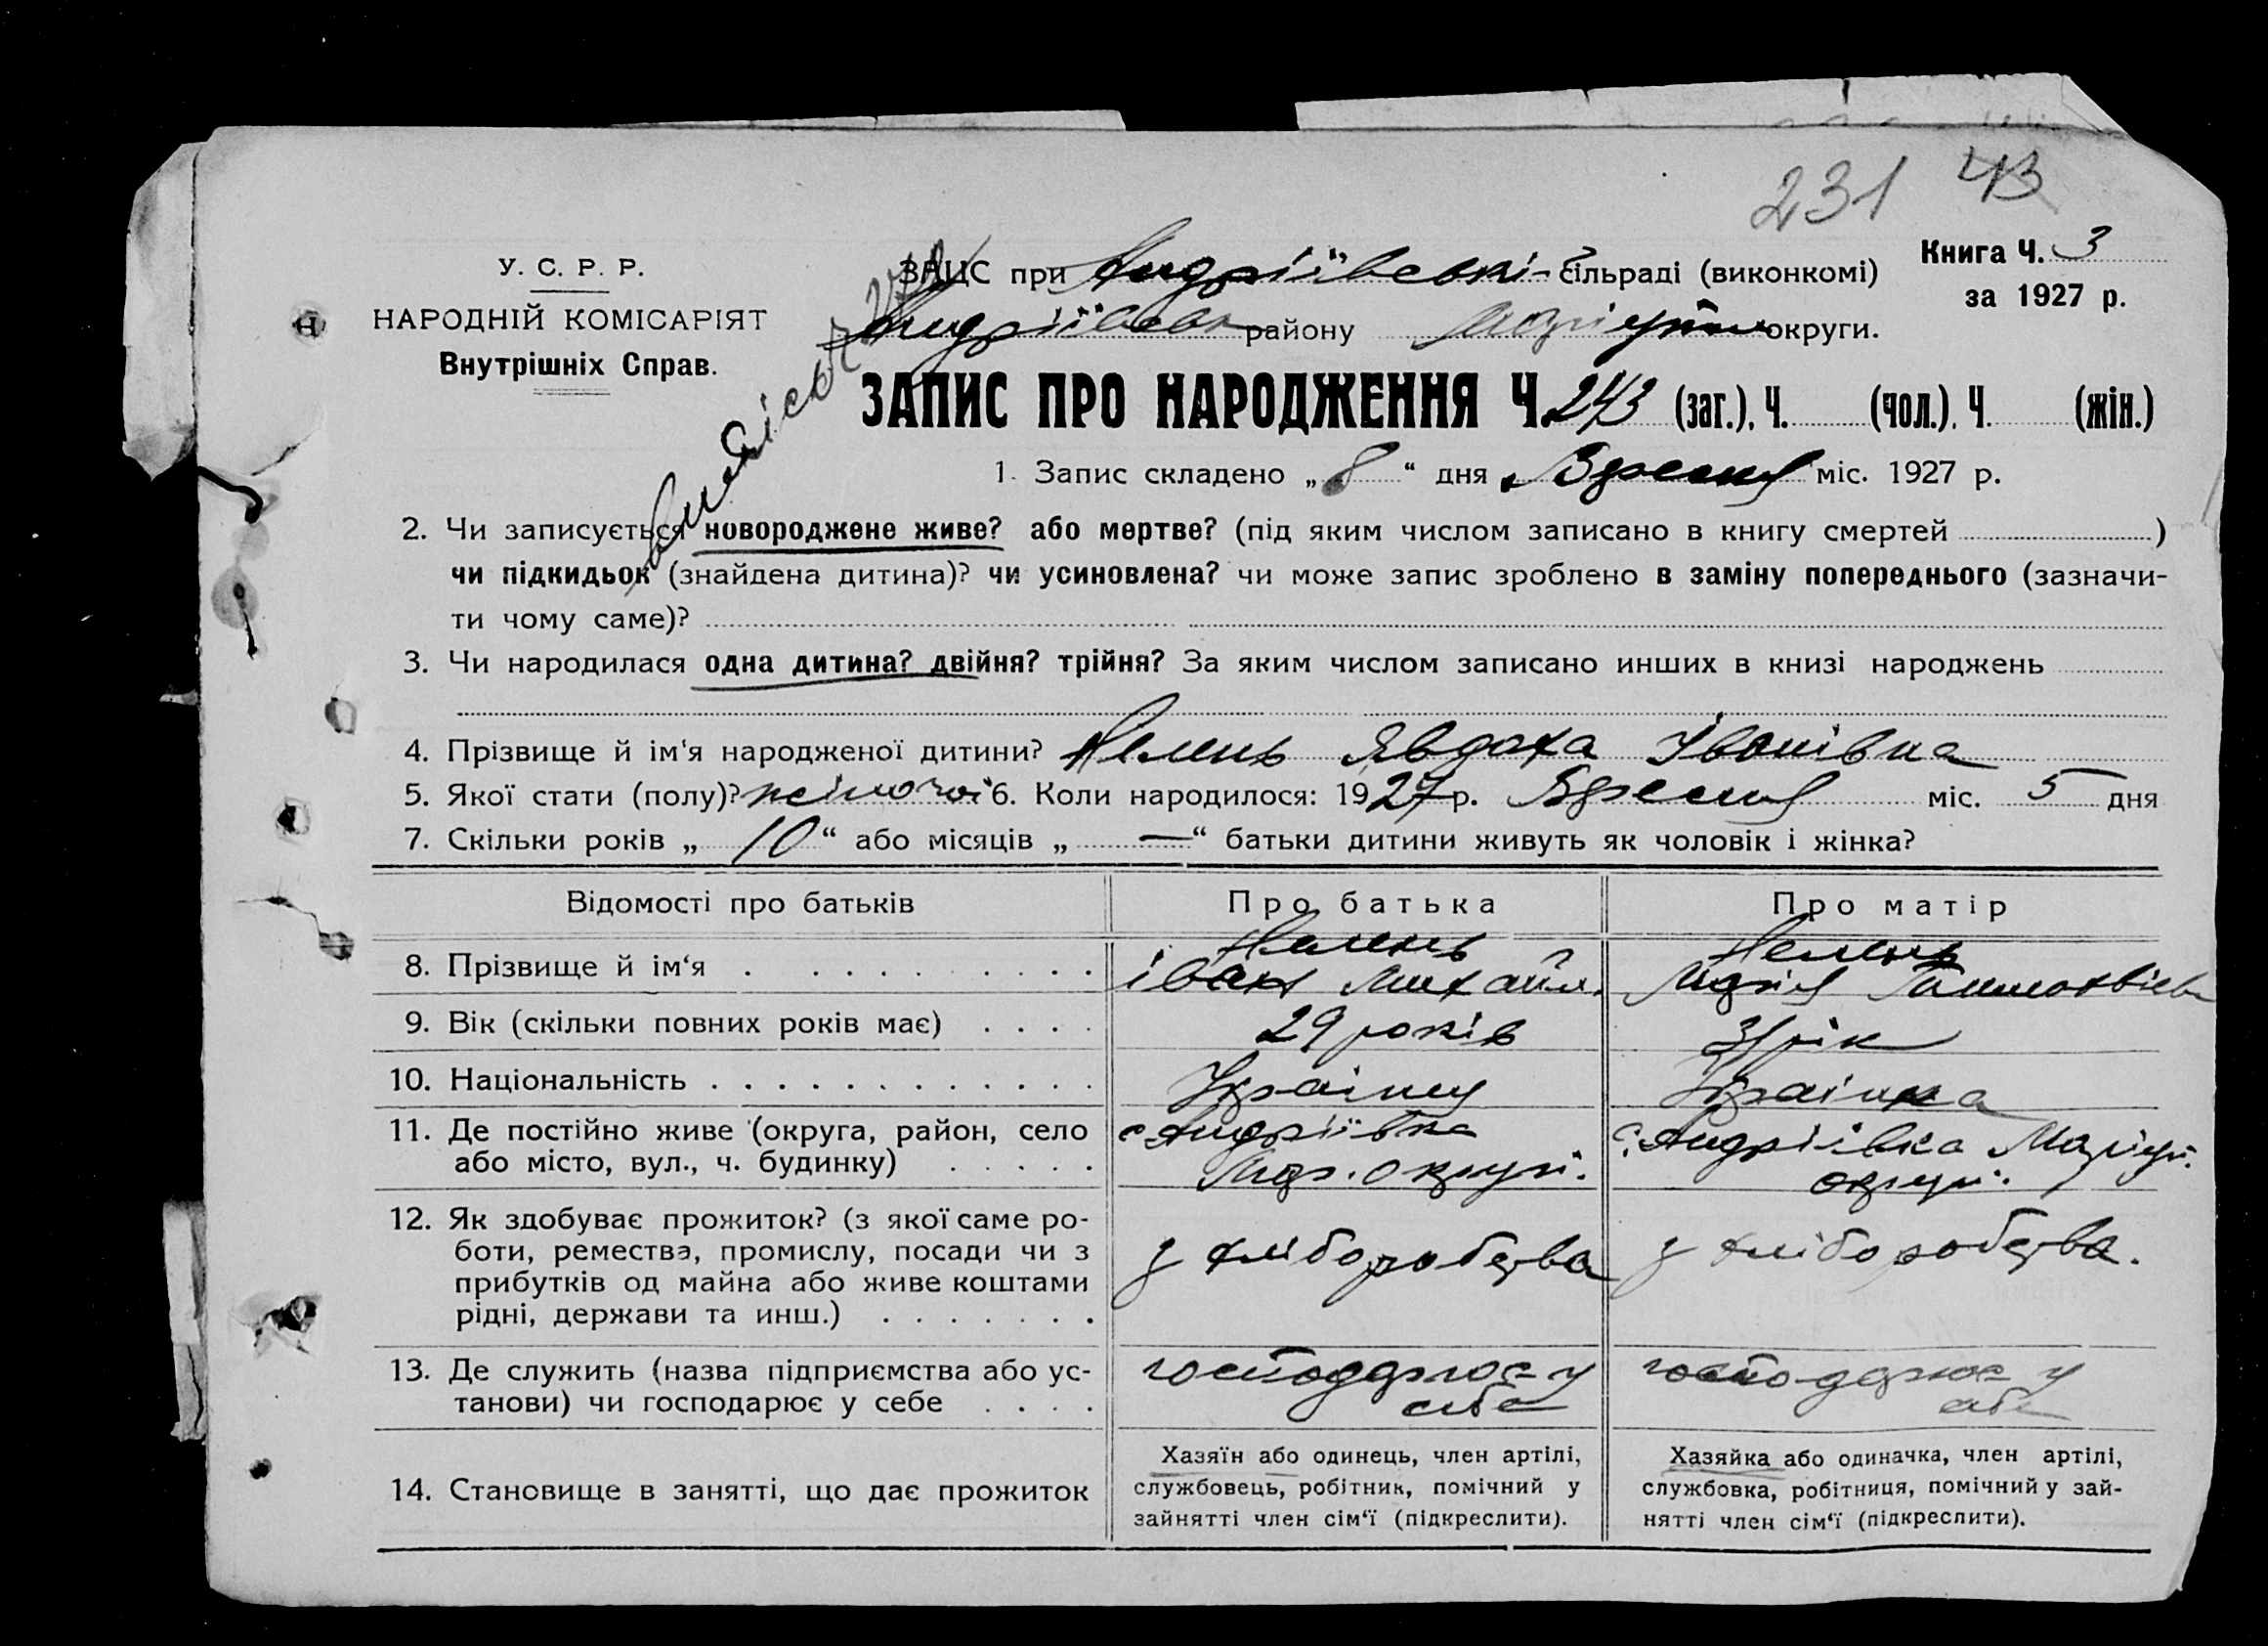 231 43
У. С. Р. Р.
НАРОДНІЙ КОМІСАРІЯТ
Внутрішніх Справ.
ЗАЦС при Андріївські сільраді (виконкомі)
Андріївськ району Маріуп округи.
Книга Ч. 3
за 1927 р.
ЗАПИС ПРО НАРОДЖЕННЯ Ч. 243 (заг.), Ч. (чол.), Ч. (жін.)
1. Запис складено „8“ дня Вресня міс. 1927 р.
2. Чи записується новороджене живе? або мертве? (під яким числом записано в книгу смертей )
чи підкидьок (знайдена дитина)? чи усиновлена? чи може запис зроблено в заміну попереднього (зазначи-
ти чому саме)?
3. Чи народилася одна дитина? двійня? трійня? За яким числом записано инших в книзі народжень
4. Прізвище й ім‘я народженої дитини? Явдоха Іванівна
5. Якої стати (полу)? жіночої 6. Коли народилося: 1927 р. Вресня міс. 5 дня
7. Скільки років „10“ або місяців „—“ батьки дитини живуть як чоловік і жінка?
Відомості про батьків Про батька Про матір
8. Прізвище й ім‘я . . . . . . . . . . іван Михайл. Марія
9. Вік (скільки повних років має) . . . . 29 років 31 рік
10. Національність . . . . . . . . . . . . . Українця Українка
11. Де постійно живе (округа, район, село
або місто, вул., ч. будинку) . . . . .
с Андріївка
Мар. округи.
с. Андріївка Маріуп.
округи.
12. Як здобуває прожиток? (з якої саме ро-
боти, ремества, промислу, посади чи з
прибутків од майна або живе коштами
рідні, держави та инш.) . . . . . . .
з хліборобства
з хліборобства.
13. Де служить (назва підприємства або ус-
танови) чи господарює у себе . . . .
господарює у
себе
господарює у
себе
14. Становище в занятті, що дає прожиток
Хазяїн або одинець, член артілі,
службовець, робітник, помічний у
зайнятті член сім‘ї (підкреслити).
Хазяйка або одиначка, член артілі,
службовка, робітниця, помічний у зай-
нятті член сім‘ї (підкреслити).